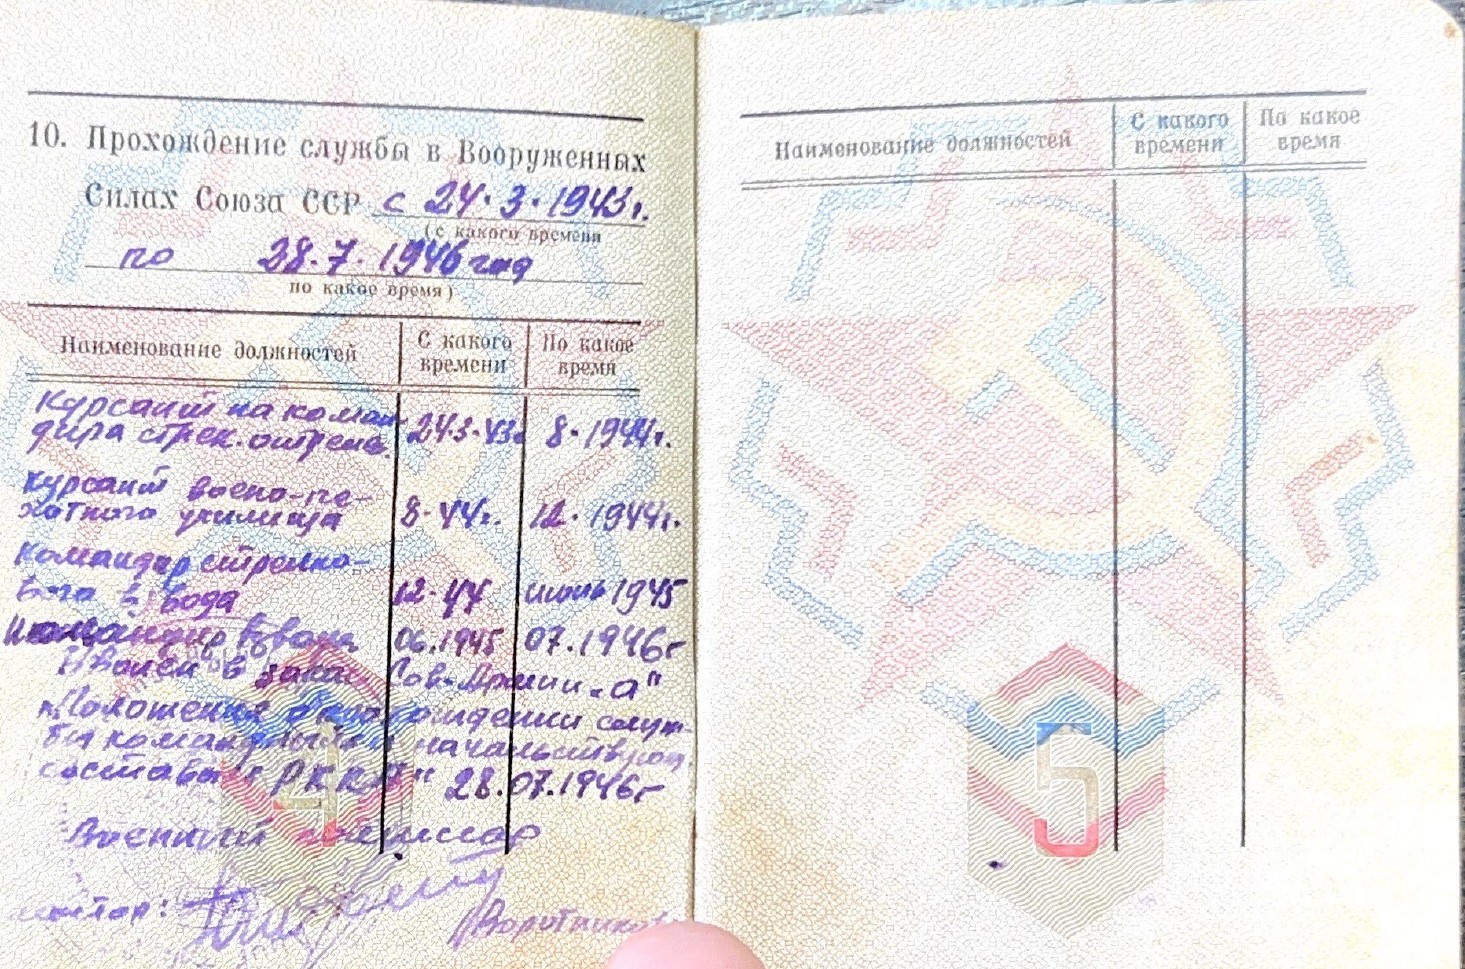 10. Прохождение службы в Вооруженных
Силах Союза ССР с 24.3.1943г.
(с какого времени
по 28.7.1946 год
по какое время)
Наименование должностей С какого времени По какое время
Курсант на коман-
дира стрел. 24.3.43г. 8.1944г.
Курсант воено-пе-
хотного училища 8.44г. 12.1944г.
Командир стрелко-
вого взвода 12.44 июнь 1945
Командир 06.1945 07.1946г
Уволен в запас Сов. Армии „а"
Положения о прохождении служ-
бы команд. и начальствующ.
состава РККА" 28.07.1946г
Военный комиссар
майор:
Воротников
4
Наименование должностей С какого времени По какое время
5